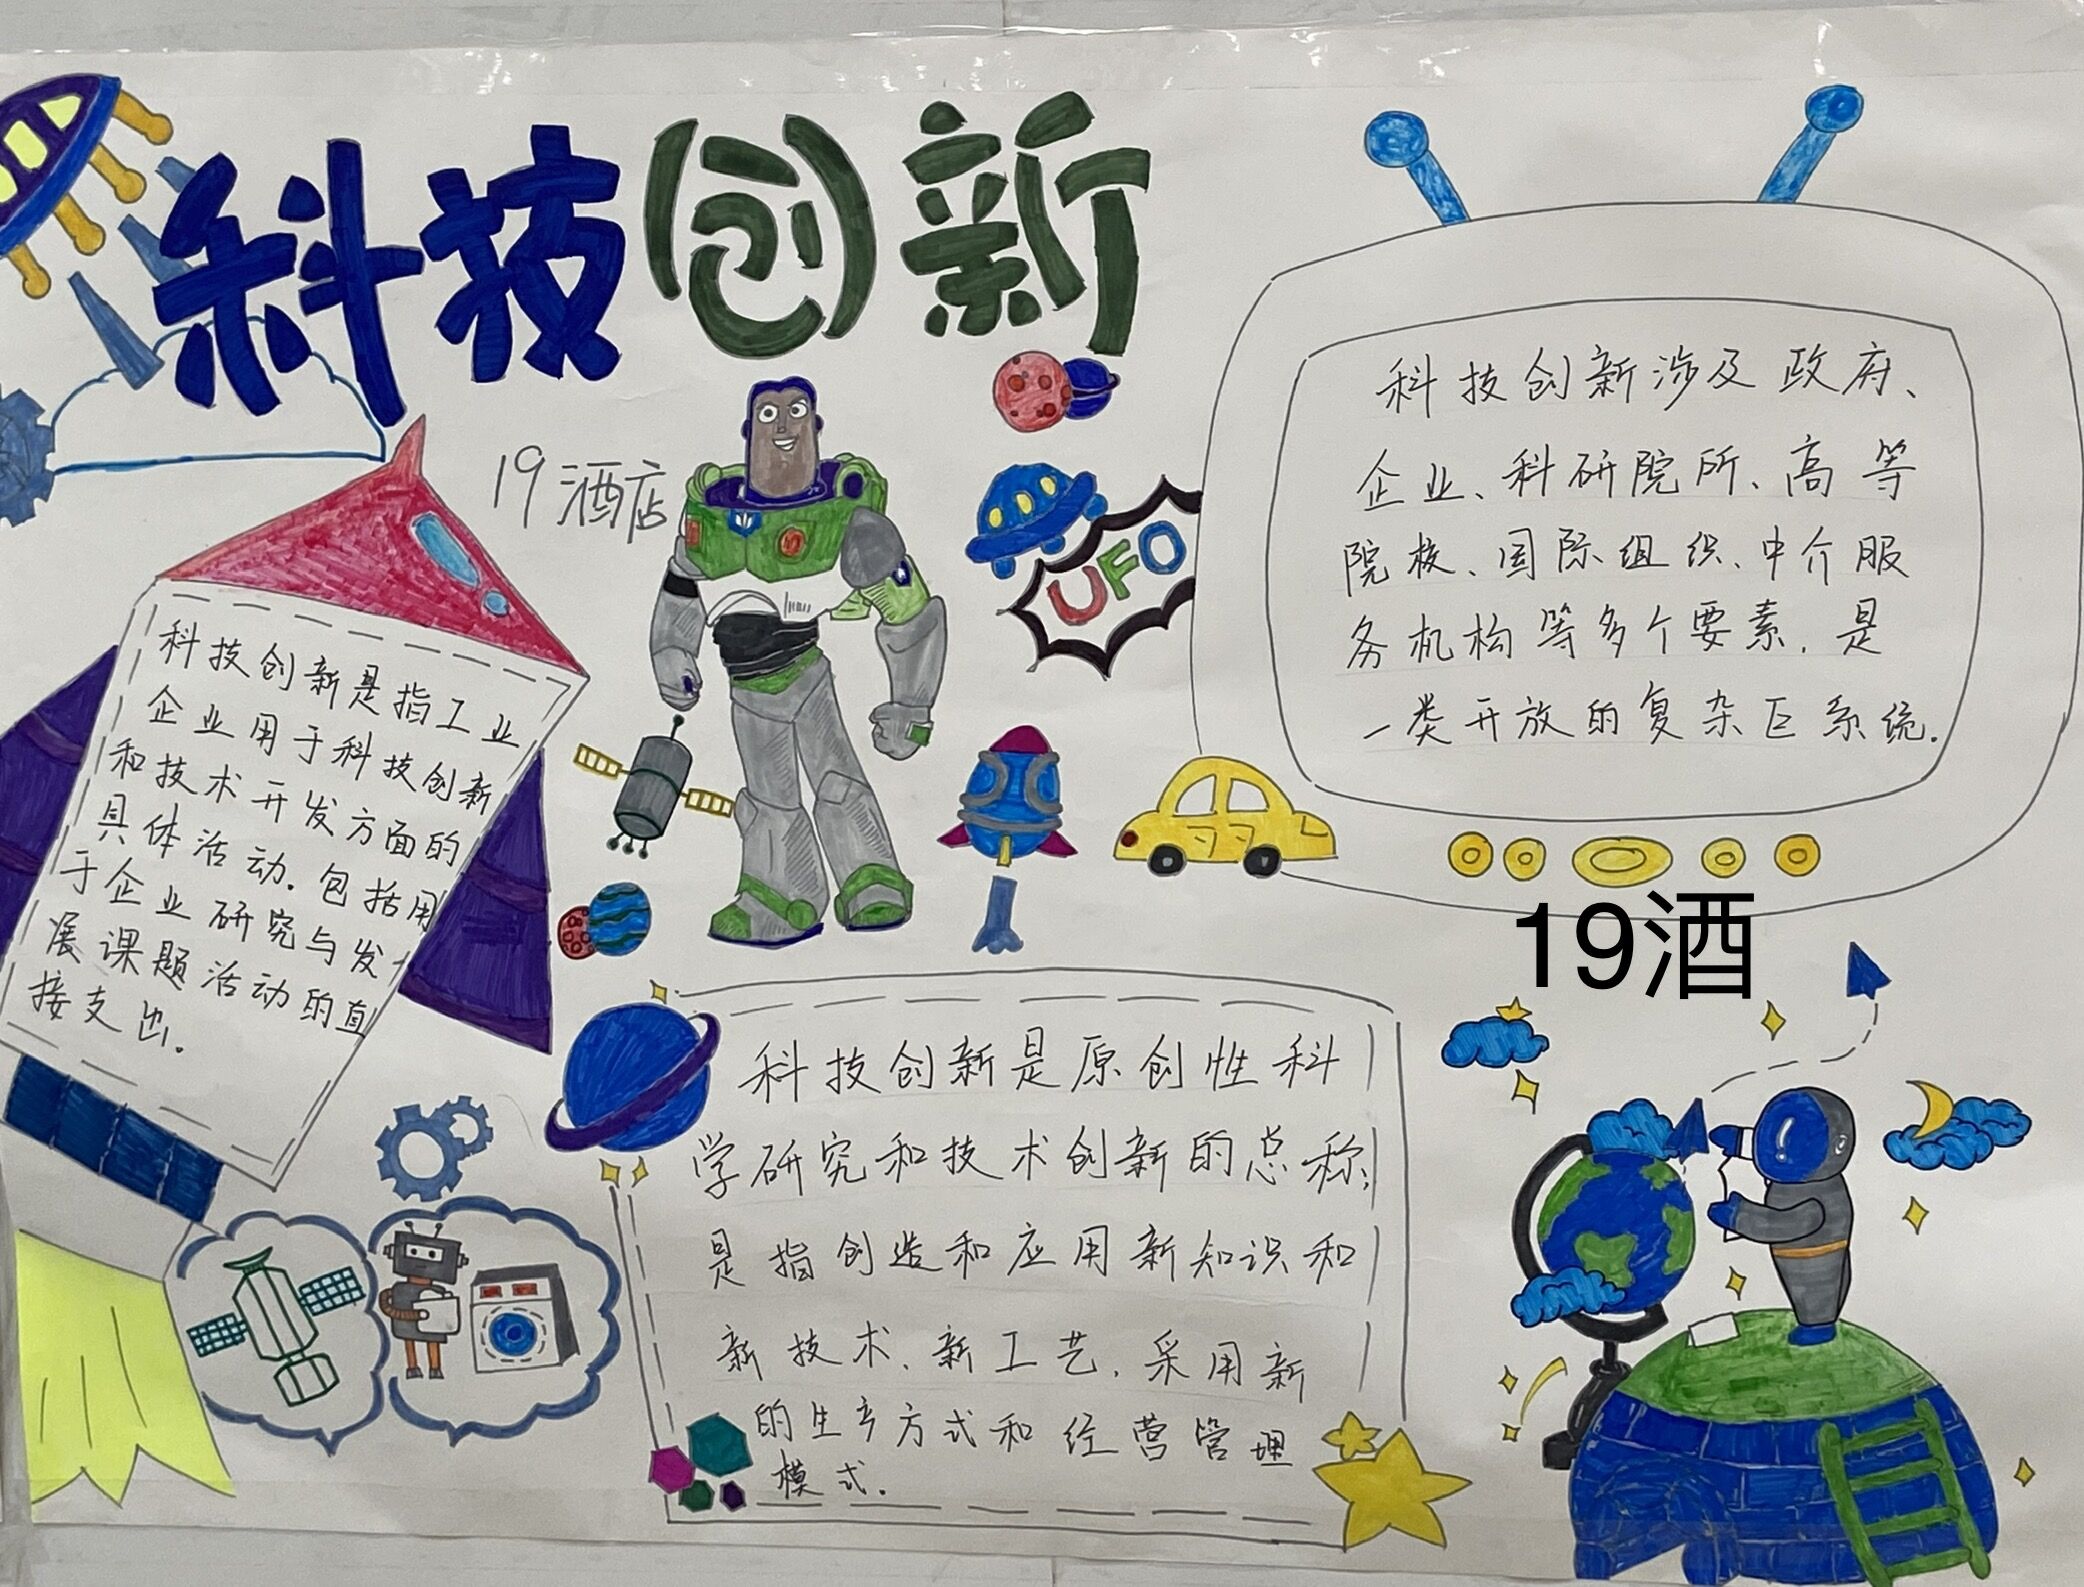 科技创新
19酒店
UFO
科技创新涉及政府、
企业、科研院所、高等
院校、国际组织、中介服
务机构等多个要素,是
一类开放的复杂巨系统.
科技创新是指工业
企业用于科技创新
和技术开发方面的
具体活动.包括用
于企业研究与发
展课题活动的直
接支出.
19酒
科技创新是原创性科
学研究和技术创新的总称;
是指创造和应用新知识和
新技术、新工艺,采用新
的生产方式和经营管理
模式.